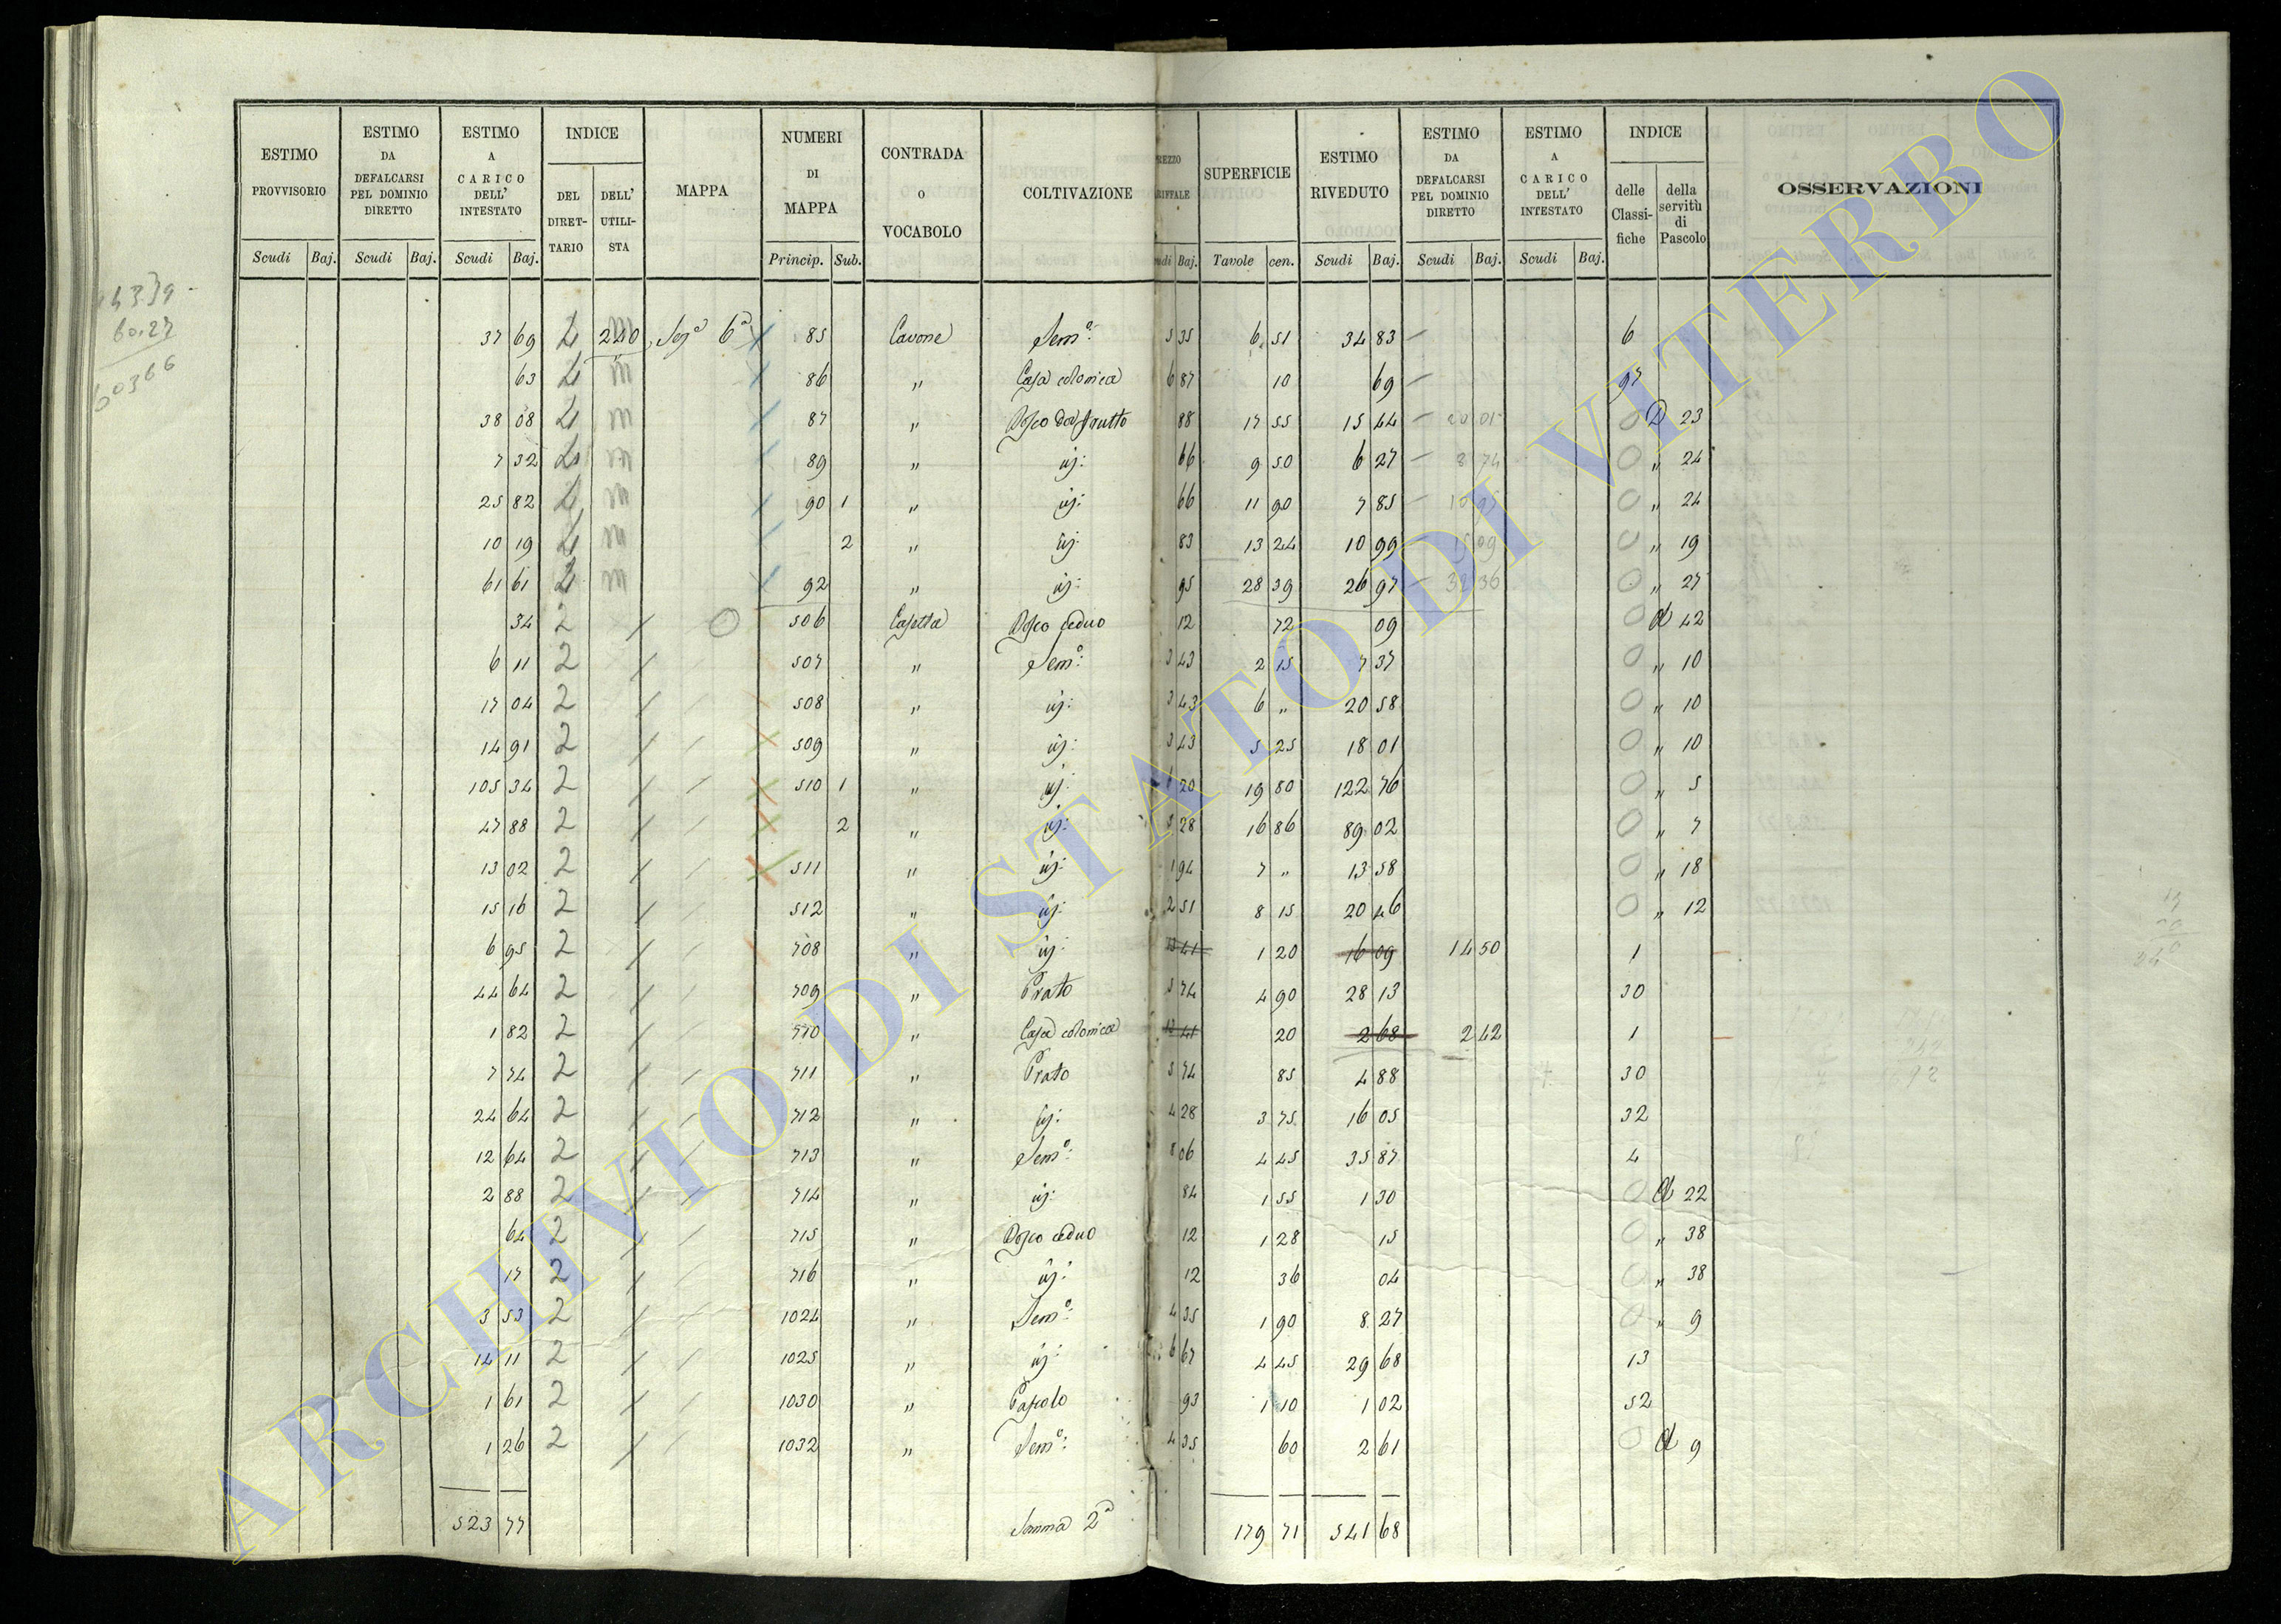 ESTIMO PROVVISORIO | ESTIMO DA DEFALCARSI PEL DOMINIO DIRETTO | ESTIMO A CARICO DELL' INTESTATO | INDICE | MAPPA | NUMERI DI MAPPA | CONTRADA o VOCABOLO | COLTIVAZIONE | REZZO RIFFALE | SUPERFICIE | ESTIMO RIVEDUTO | ESTIMO DA DEFALCARSI PEL DOMINIO DIRETTO | ESTIMO A CARICO DELL' INTESTATO | INDICE | OSSERVAZIONI
DEL DIRET-TARIO | DELL' UTILI-STA | delle Classi-fiche | della servitù di Pascolo
Scudi | Baj. | Scudi | Baj. | Scudi | Baj. | Princip. | Sub. | udi | Baj. | Tavole | cen. | Scudi | Baj. | Scudi | Baj. | Scudi | Baj.
37 69 240 Sez.a 6a 85 Cavone Sem.o: 5 35 6 51 34 83 6
63 m 86 " Casa colonica 6 87 10 69 97
38 08 m 87 " Bosco da frutto 88 17 55 15 44 20 01 0 D 23
7 32 m 89 " id: 66 9 50 6 27 8 74 0 " 24
25 82 m 90 1 " id: 66 11 90 7 85 0 " 24
10 19 m 2 " id: 83 13 24 10 99 15 09 0 " 19
61 61 m 92 " id: 95 28 39 26 97 32 36 0 " 27
34 2 0 506 Casetta Bosco ceduo 12 72 09 0 d 42
6 11 2 507 " Sem.o: 3 43 2 15 7 37 0 " 10
17 04 2 508 " id: 3 43 6 " 20 58 0 " 10
14 91 2 509 " id: 3 43 5 25 18 01 0 " 10
105 34 2 510 1 " id: 6 20 19 80 122 76 0 " 5
47 88 2 2 " id: 5 28 16 86 89 02 0 " 7
13 02 2 511 " id: 1 94 7 " 13 58 0 " 18
15 16 2 512 " id: 2 51 8 15 20 46 0 " 12
6 95 2 708 " id: 13 41 1 20 16 09 14 50 1
44 64 2 709 " Prato 5 74 4 90 28 13 30
1 82 2 710 " Casa colonica 13 41 20 2 68 2 42 1
7 74 2 711 " Prato 5 74 85 4 88 30
24 64 2 712 " id: 4 28 3 75 16 05 32
12 64 2 713 " Sem.o: 8 06 4 45 35 87 4
2 88 2 714 " id: 84 1 55 1 30 0 d 22
64 2 715 " Bosco ceduo 12 1 28 15 0 " 38
17 2 716 " id: 12 36 04 0 " 38
3 53 2 1024 " Sem.o: 4 35 1 90 8 27 0 " 9
14 11 2 1025 " id: 6 67 4 45 29 68 13
1 61 2 1030 " Pascolo 93 1 10 1 02 52
1 26 2 1032 " Sem.o: 4 35 60 2 61 0 d 9
523 77 Somma 2a 179 71 541 68
60.27
ARCHIVIO DI STATO DI VITERBO